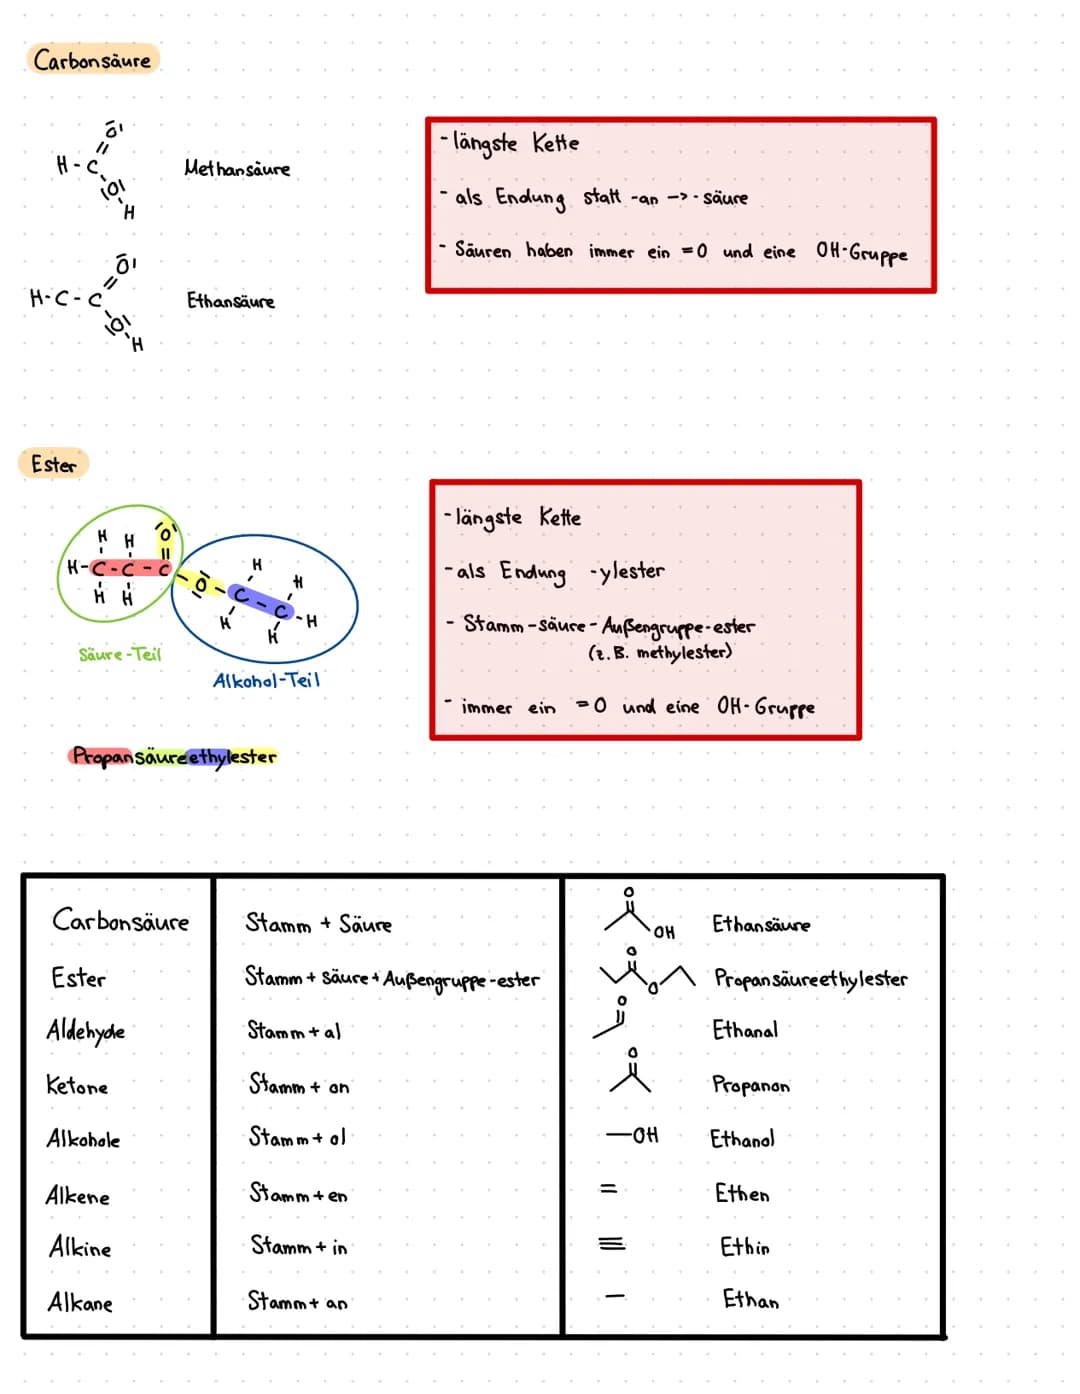 Carbonsäure
H-C
=O
O
H
Methansäure
- längste Kette
- als Endung statt -an -> -säure
- Säuren haben immer ein =O und eine OH-Gruppe
H-C-C
=O
O
H
Ethansäure
Ester
- längste Kette
- als Endung -ylester
- Stamm-säure-Außengruppe-ester
(z.B. methylester)
- immer ein =O und eine OH-Gruppe
H H O
H-C-C-C-O-C-C-H
H H
H H
H H
Säure-Teil
Alkohol-Teil
Propansäureethylester
Carbonsäure Stamm + Säure O OH Ethansäure
Ester Stamm + säure + Außengruppe-ester O O Propansäureethylester
Aldehyde Stamm + al O Ethanal
Ketone Stamm + on O Propanon
Alkohole Stamm + ol —OH Ethanol
Alkene Stamm + en = Ethen
Alkine Stamm + in ≡ Ethin
Alkane Stamm + an — Ethan